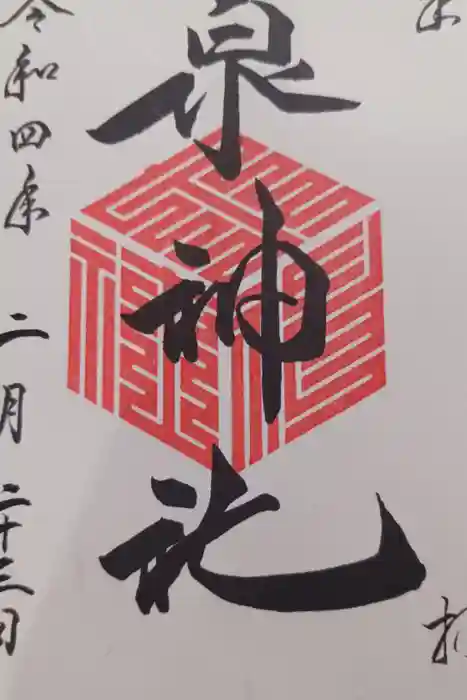 奉拝
泉神社
令和四年 二月 二十三日